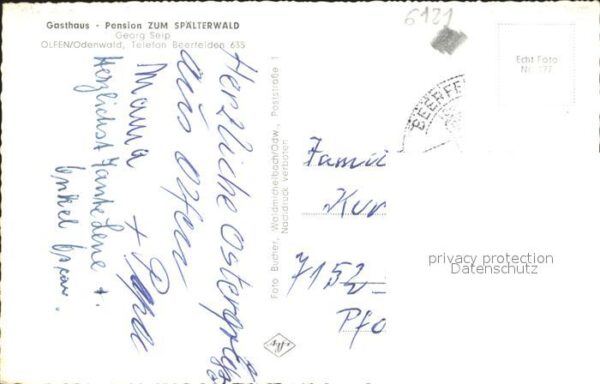 Gasthaus - Pension ZUM SPÄLTERWALD
Georg Seip
OLFEN/Odenwald, Telefon Beerfelden 635
Herzliche Ostergrüße
aus Olfen
Mama + Papa
Herzlichst Tante Lene +
Onkel Oskar.
Foto Bucher, Waldmichelbach/Odw., Poststraße 1
Nachdruck verboten
6121
BEERFE
Echt Foto
Nr.
Famili
Kur
7152
Pfo
privacy protection
Datenschutz